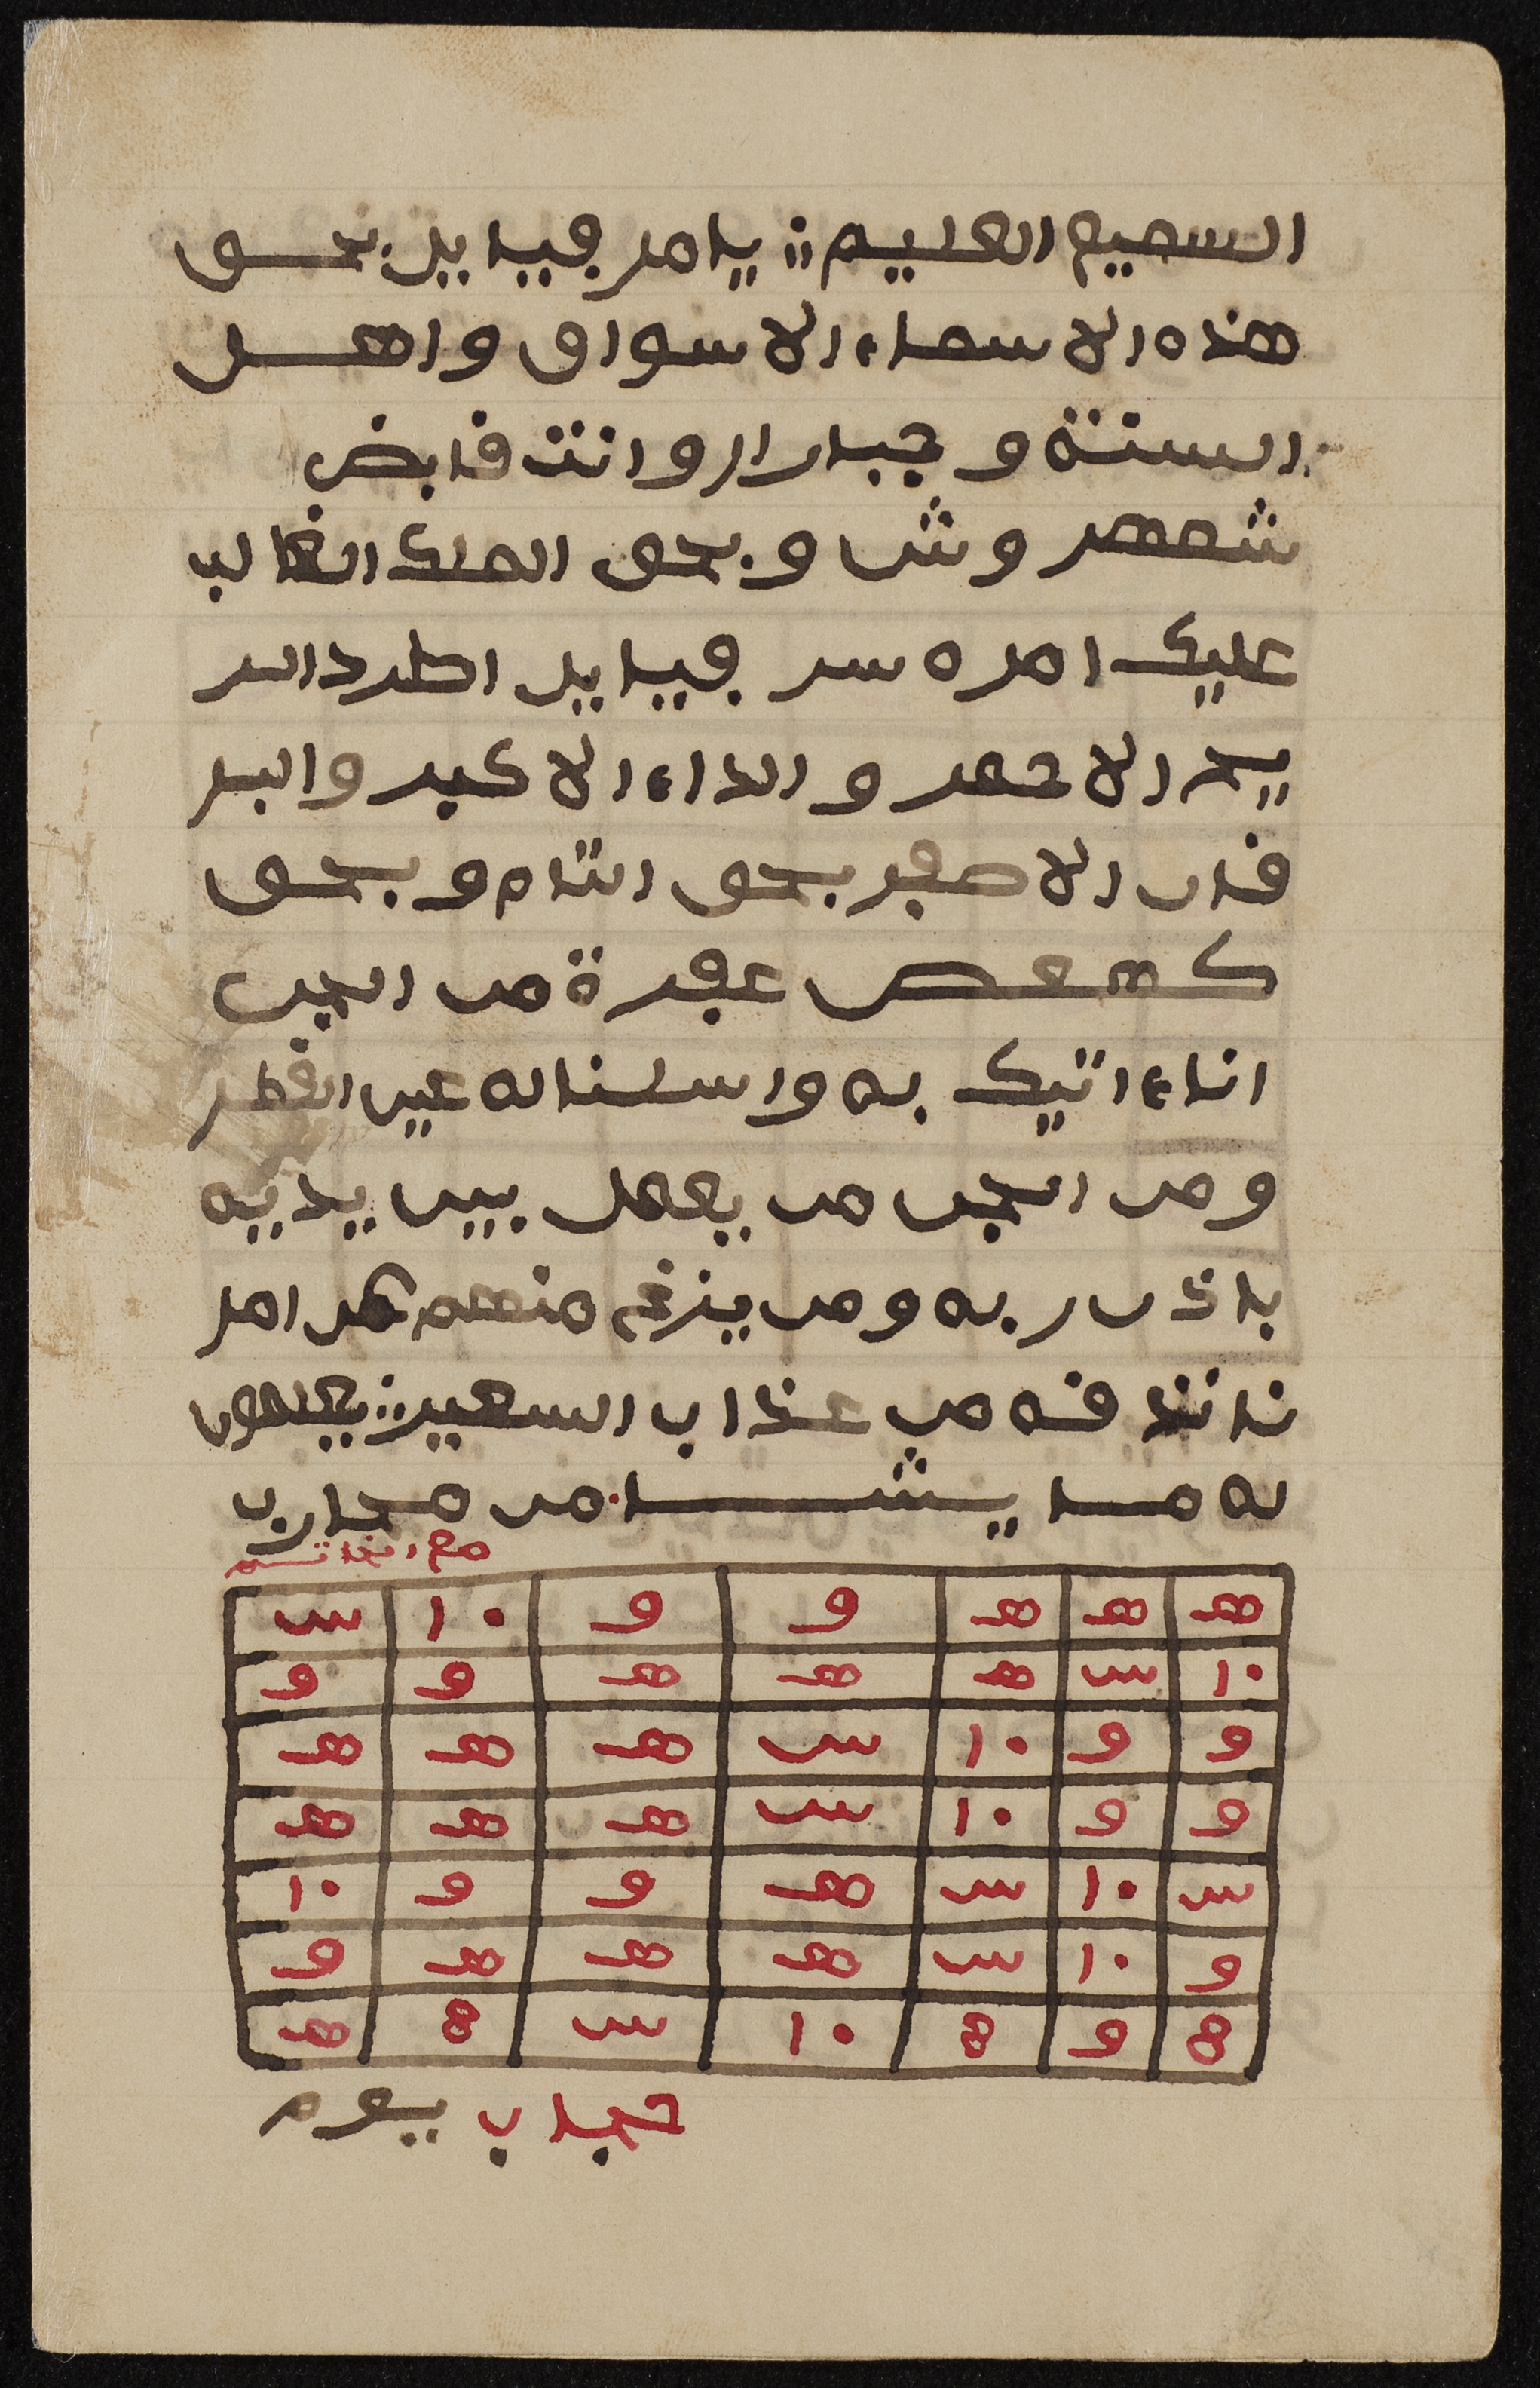 السميع العليم ؞ يا مر فيبا ييل بحق
هذه الاسماء الاسواق واهل
السنة و جبارا ار وانت قابض
شمهر وش و بحق الملك الغالب
عليك امره سر فيبا ييل اطرد الر
يح الاحمر والداء الاكبر والبر
قان الاصفر بحق التام و بحق
كهعص عفرة من الجن
انا ءاتيك به واسلنا له عين القطر
ومن الجن من يعمل بين يديه
باذن ربه ومن يزغ منهم عن امر
نا نذقه من عذاب السعير ؞ يعملون
له ما يشا من محارب
مع الخاتم
هـ هـ هـ و و ١٠ س
١٠ س هـ هـ هـ و و
و و ١٠ س هـ هـ هـ
و و ١٠ س هـ هـ هـ
س ١٠ س هـ و و ١٠
و ١٠ س هـ هـ هـ و
8 و 8 ١٠ س 8 هـ
حجاب يبوم